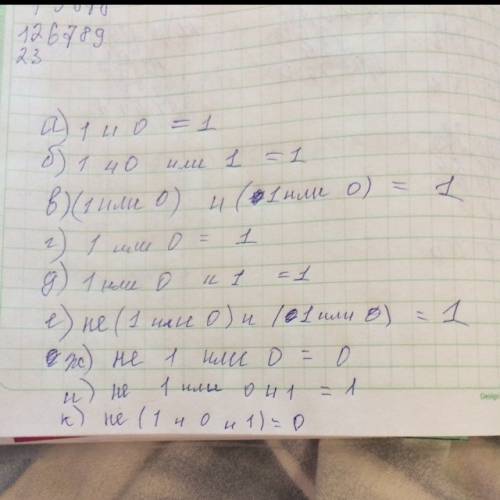 126789
23
а) 1 и 0 = 1
б) 1 и 0 или 1 = 1
в) (1 или 0) и (1 или 0) = 1
г) 1 или 0 = 1
д) 1 или 0 и 1 = 1
е) не (1 или 0) и (1 или 0) = 1
ж) не 1 или 0 = 0
и) не 1 или 0 и 1 = 1
к) не (1 и 0 и 1) = 0